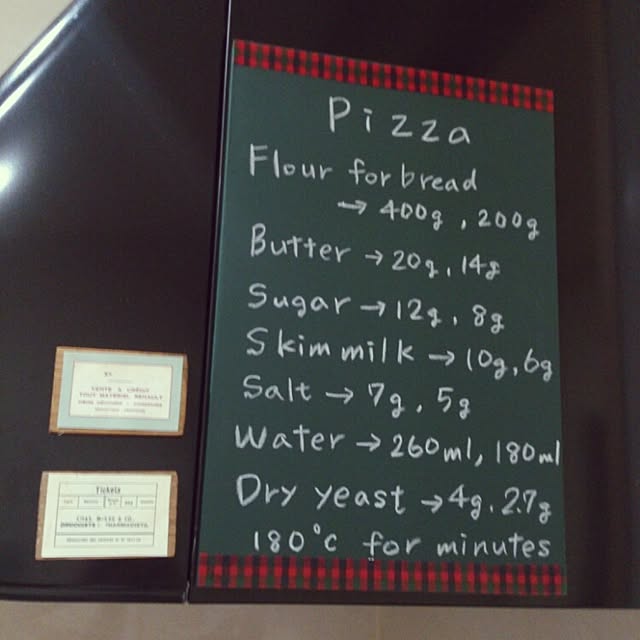 Pizza
Flour for bread
→ 400g, 200g
Butter → 20g, 14g
Sugar → 12g, 8g
Skim milk → 10g, 6g
Salt → 7g, 5g
Water → 260ml, 180ml
Dry yeast → 4g, 2.7g
180°c for minutes
VENTE & CREDIT
TOUT MATERIEL RENAULT
Tickets